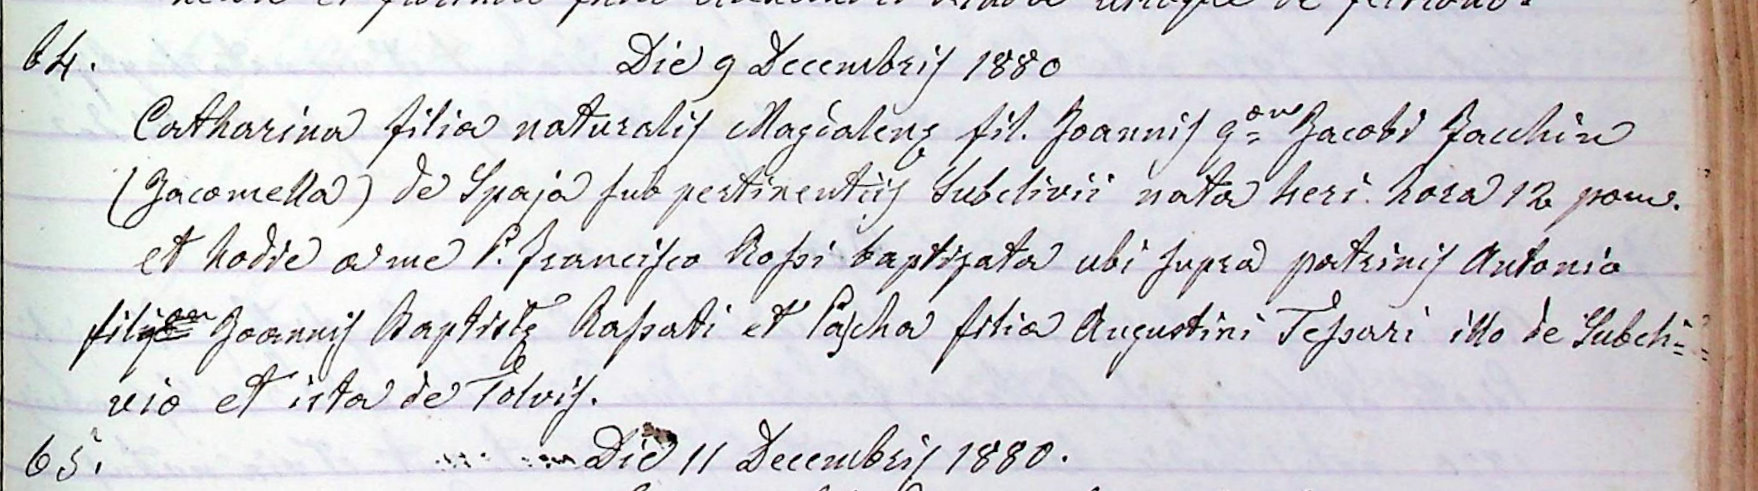 64.
Die 9 Decembris 1880
Catharina filia naturalis Magdalenę fil. Joannis qm Jacobi Facchin
(Jacomella) de Spaja sub pertinentiis Subclivii nata heri hora 12 pom.
et hodie a me P. Francisco Rossi baptizata ubi supra patrinis Antonio
Joannis Baptistę Rassati et Pascha filia Augustini Tessari illo de Subcli=
vio et ista de Tolvis.
65.
Die 11 Decembris 1880.